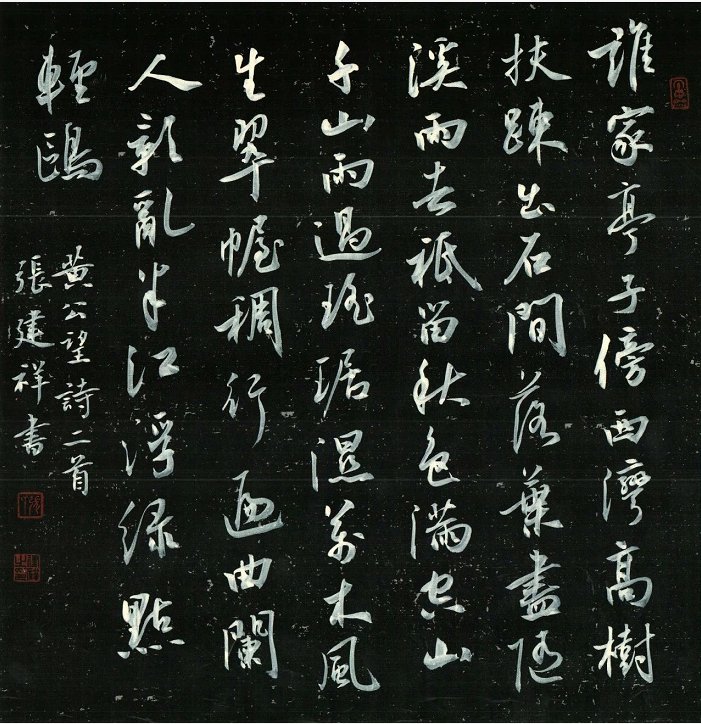 誰家亭子傍西灣高樹
扶踈出石間落葉盡隨
溪雨去祇留秋色滿空山
千山雨過瑤琚濕萬木風
生翠幄稠行遍曲闌
人影亂半江浮綠點
輕鷗
黃公望詩二首
張建祥書